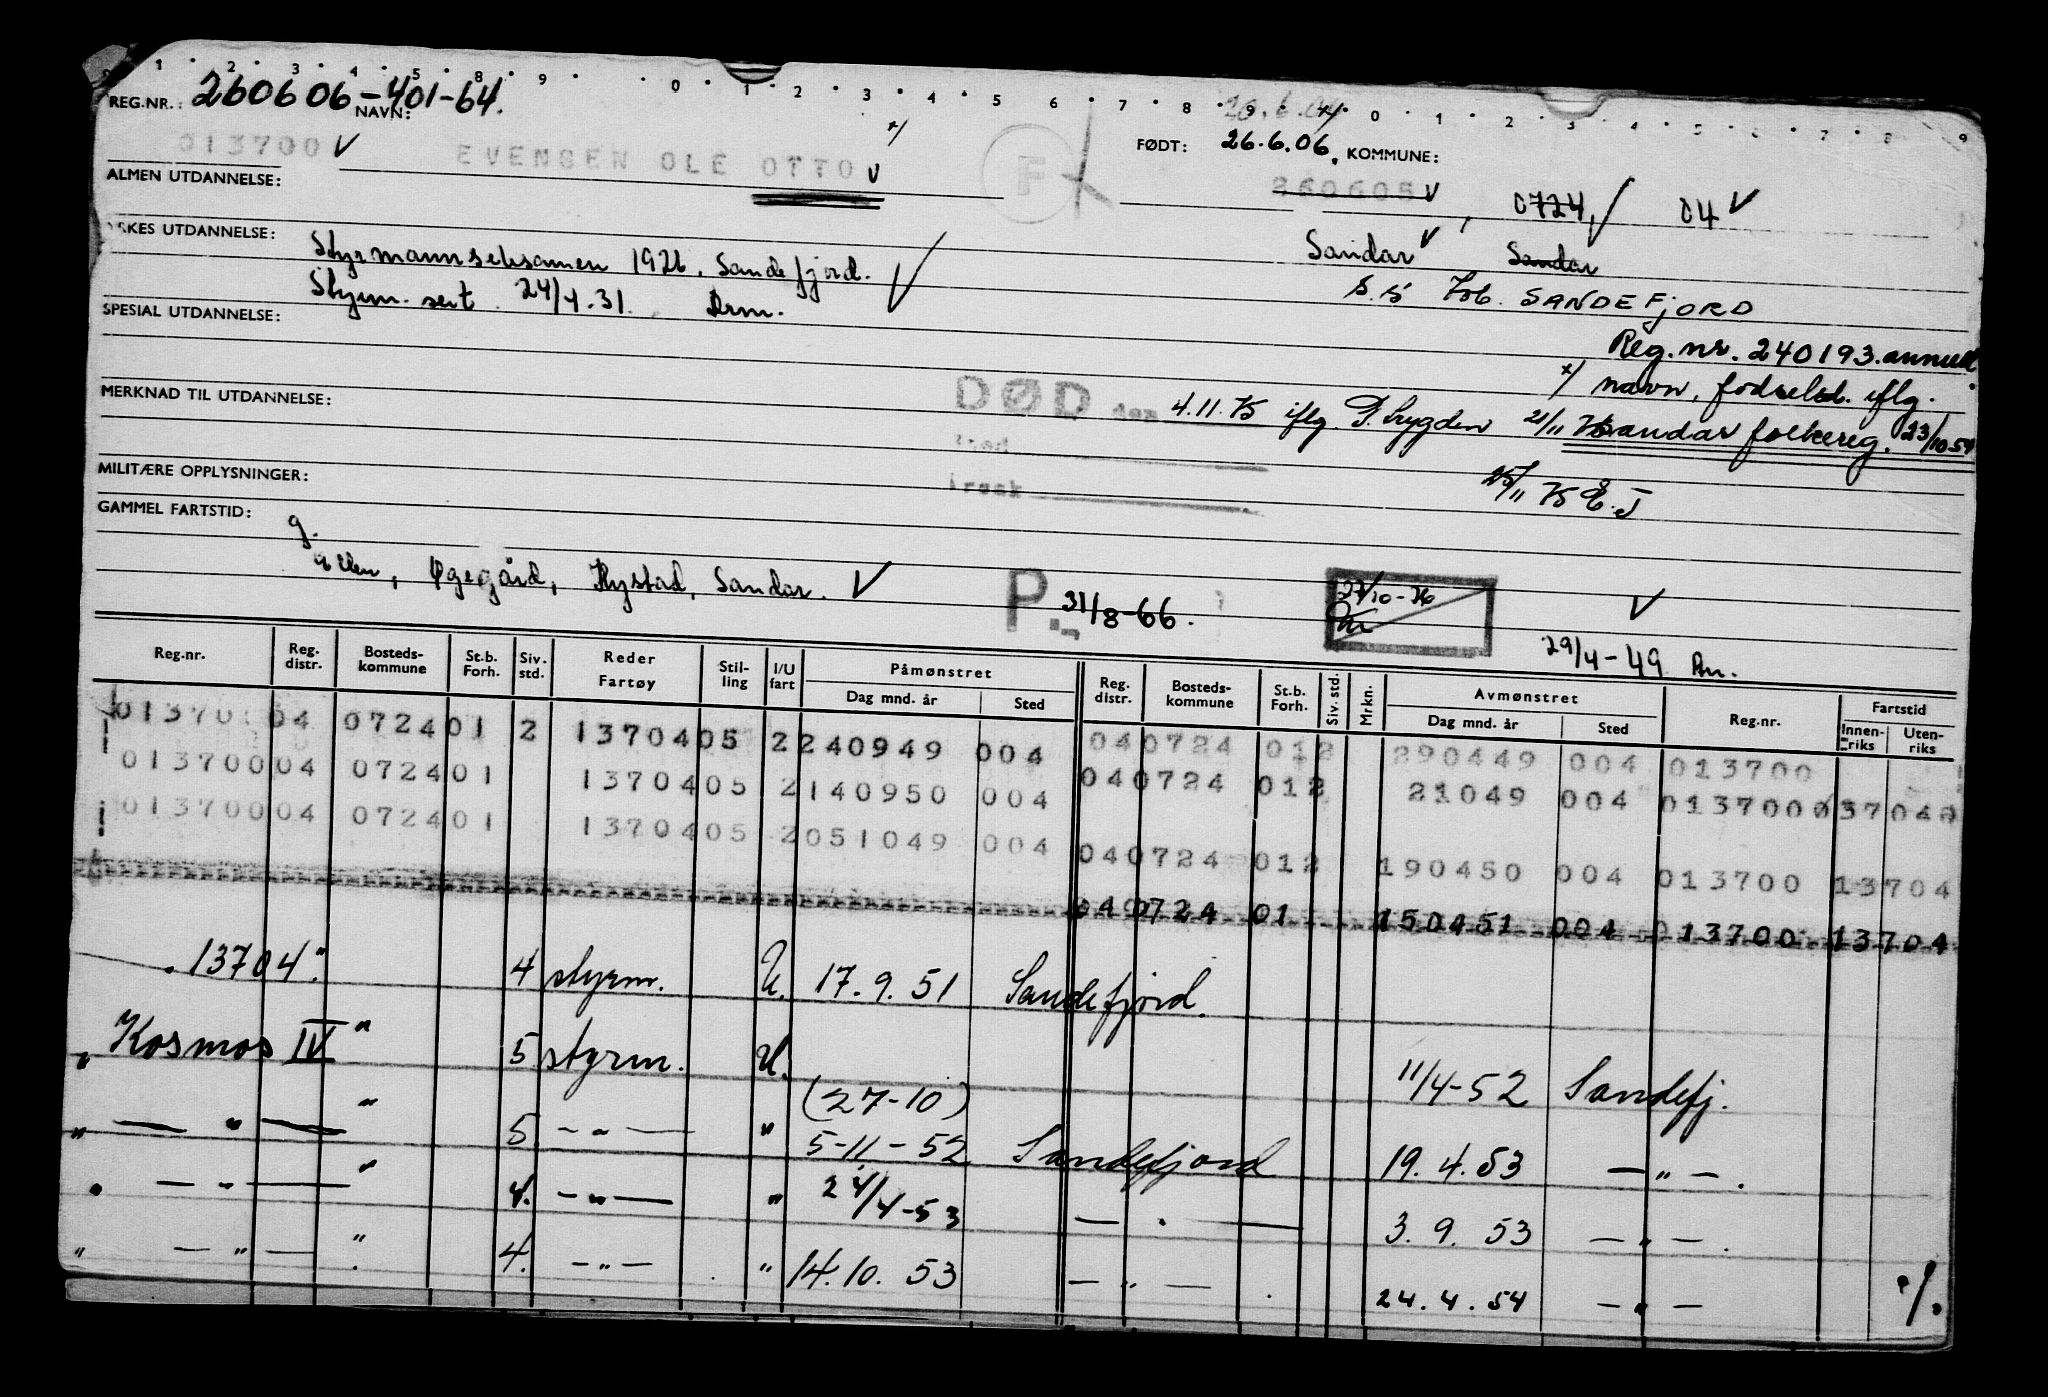 1 2 3 4 5 8 9 0 1 2 3 4 5 6 7 8 9 0 1 2 3 4 5 6 7 8 9
REG.NR.: 260606-401-64.
NAVN:
26.6.04
FØDT: 26.6.06. KOMMUNE:
013700 V EVENSEN OLE OTTO V
F
260605 V, 0724, 04 V
ALMEN UTDANNELSE:
Sandar V Sandar
YRKES UTDANNELSE: Styrmannseksamen 1926. Sandefjord. V
Styrm. sert. 24/4.31. Drm.
S.S SANDEFJORD
SPESIAL UTDANNELSE:
Reg.nr. 240193. annull.
x/ navn, fødselsd. iflg.
MERKNAD TIL UTDANNELSE:
DØD den 4.11.75 iflg. P. Trygden 21/11 75
Sandar folkereg. 23/10 54
sted
årsak
MILITÆRE OPPLYSNINGER:
25/11 75 E.J
GAMMEL FARTSTID:
g.
Ellen, Øgegård, Nystad, Sandar. V
P 31/8-66.
27/10-76
V
29/4-49
Reg.nr. Reg. distr. Bosteds- kommune St.b. Forh. Siv. std. Reder Fartøy Stil- ling I/U fart Påmønstret Dag mnd. år Sted Reg. distr. Bosteds- kommune St.b. Forh. Siv. std. Mrkn. Avmønstret Dag mnd. år Sted Reg.nr. Fartstid Innen- riks Uten- riks
01370 04 0724 01 2 13704 05 2 240949 004 04 0724 01 2 290449 004 013700
013700 04 0724 01 13704 05 2 140950 004 04 0724 01 2 21049 004 013700
013700 04 0724 01 13704 05 2 051049 004 04 0724 01 2 190450 004 013700 13704
04 0724 01 150451 004 013700 13704
"13704" 4 styrm. U. 17.9.51 Sandefjord.
"Kosmos IV" 5 styrm. U. 11/4-52 Sandefj.
(27-10)
" — " — " 5. — " — " 5-11-52 Sandefjord 19.4.53 — " — .
" — " — " 4. — " — " 24/4-53 — " — 3.9.53 — " — .
" — " — " 4. — " — " 14.10.53 — " — 24.4.54 — " —
./.